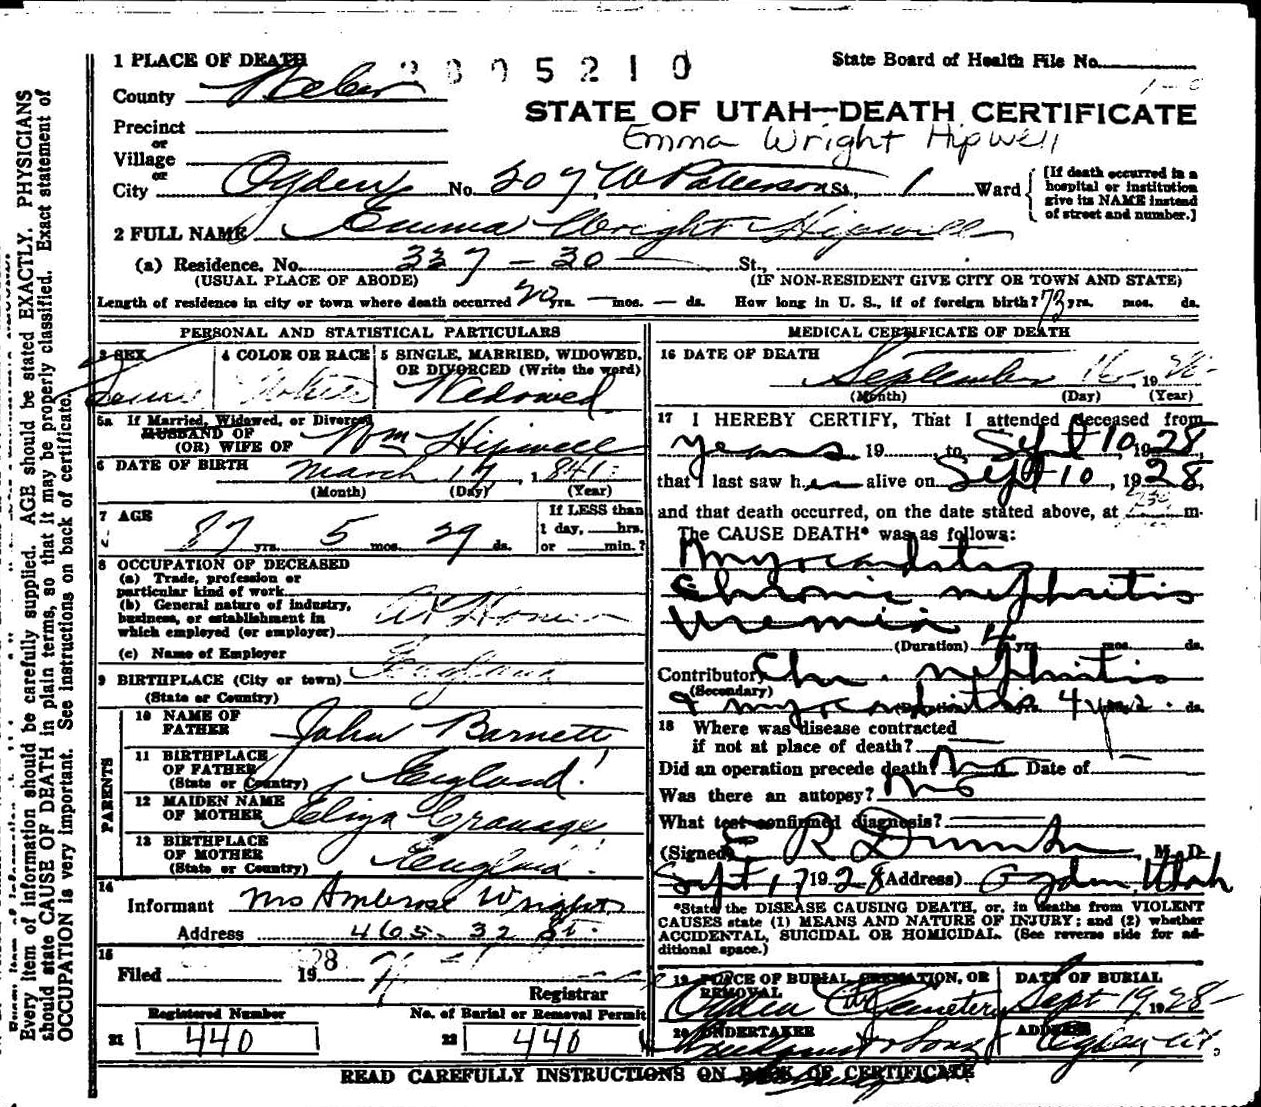 1 PLACE OF DEATH
2805210
State Board of Health File No.
County Weber
STATE OF UTAH—DEATH CERTIFICATE
Precinct
Emma Wright Hipwell
or
Village
or
City Ogden No. 207 W Patterson St., 1 Ward
[If death occurred in a hospital or institution give its NAME instead of street and number.]
2 FULL NAME Emma Wright Hipwell
(a) Residence. No. 337 - 30 St.,
(USUAL PLACE OF ABODE) (IF NON-RESIDENT GIVE CITY OR TOWN AND STATE)
Length of residence in city or town where death occurred yrs. — mos. — ds. How long in U. S., if of foreign birth? 73 yrs. mos. ds.
PERSONAL AND STATISTICAL PARTICULARS
3 SEX
4 COLOR OR RACE White
5 SINGLE, MARRIED, WIDOWED, OR DIVORCED (Write the word) Widowed
5a If Married, Widowed, or Divorced
HUSBAND OF
(OR) WIFE OF Wm Hipwell
6 DATE OF BIRTH March 17, 1841
(Month) (Day) (Year)
7 AGE 87 yrs. 5 mos. 29 ds.
If LESS than 1 day, hrs. or min.?
8 OCCUPATION OF DECEASED
(a) Trade, profession or particular kind of work
(b) General nature of industry, business, or establishment in which employed (or employer) At Home
(c) Name of Employer
9 BIRTHPLACE (City or town) England
(State or Country)
PARENTS
10 NAME OF FATHER John Barnett
11 BIRTHPLACE OF FATHER England
(State or Country)
12 MAIDEN NAME OF MOTHER Eliza Cranage
13 BIRTHPLACE OF MOTHER England
(State or Country)
14
Informant Mrs Ambrose Wright
Address 465 - 32 St.
15
Filed 1928
Registrar
Registered Number
21 440
No. of Burial or Removal Permit
22 440
MEDICAL CERTIFICATE OF DEATH
16 DATE OF DEATH
September 16, 1928
(Month) (Day) (Year)
17 I HEREBY CERTIFY, That I attended deceased from
years 19 , to Sept 10, 1928,
that I last saw her alive on Sept 10, 1928,
and that death occurred, on the date stated above, at m.
The CAUSE DEATH* was as follows:
Myocarditis
Chronic nephritis
Uremia
(Duration) 4 yrs. mos. ds.
Contributory Chr. nephritis
(Secondary)
& myocarditis 4 yrs. ds.
18 Where was disease contracted
if not at place of death?
Did an operation precede death? No Date of
Was there an autopsy? No
What test confirmed diagnosis?
(Signed) E R Dumke, M. D.
Sept 17 1928 (Address) Ogden Utah
*State the DISEASE CAUSING DEATH, or, in deaths from VIOLENT
CAUSES state (1) MEANS AND NATURE OF INJURY; and (2) whether
ACCIDENTAL, SUICIDAL OR HOMICIDAL. (See reverse side for additional space.)
19 PLACE OF BURIAL, CREMATION, OR REMOVAL
Ogden City Cemetery
DATE OF BURIAL
Sept 19, 1928
20 UNDERTAKER
& Sons
ADDRESS
Ogden Ut.
READ CAREFULLY INSTRUCTIONS ON BACK OF CERTIFICATE
Every item of information should be carefully supplied. AGE should be stated EXACTLY. PHYSICIANS
should state CAUSE OF DEATH in plain terms, so that it may be properly classified. Exact statement of
OCCUPATION is very important. See instructions on back of certificate.